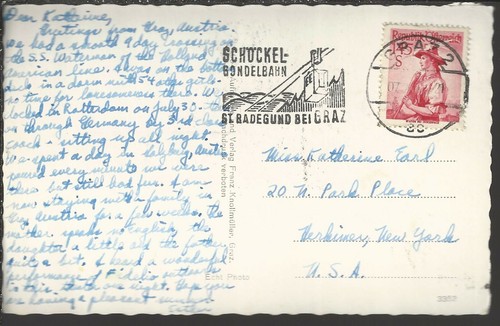 Dear Katherine,
Greetings from Graz, Austria.
We had a smooth 9 day crossing on
the S.S. Waterman of the Holland
American line. Being on the bottom
deck in a dorm with 54 other girls
no time for lonesomeness there. We
docked in Rotterdam on July 30. then
on through Germany by 3rd class
coach - sitting up all night.
We spent a day in Salzburg, Austria
rained every minute we were
there but still had fun. I am
now staying with a family in
Graz Austria for a few weeks. The
mother speaks no English, the
daughter a little and the father
quite a bit. I heard a wonderful
performance of Fidelio outside
in this town one night. Hope you
are having a pleasant summer
SCHÖCKEL-
GONDELBAHN
ST. RADEGUND BEI GRAZ
GRAZ 2
Republik Österreich
S
Verlag Franz Knollmüller, Graz.
verboten
Echt Photo
Miss Katherine Earl
20 N. Park Place
Herkimer, New York
U.S.A.